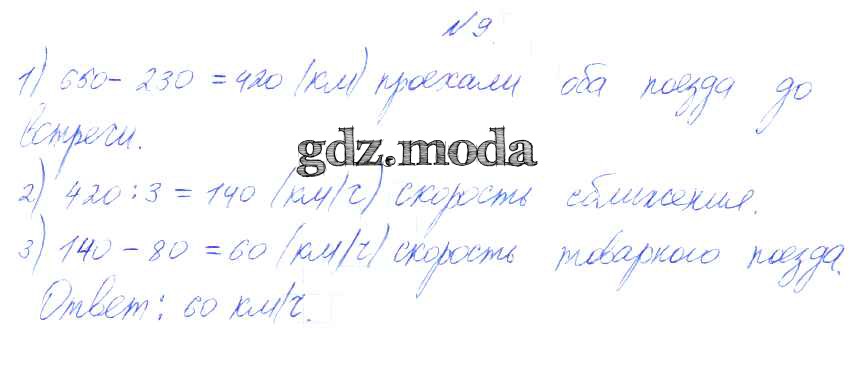 № 9.
1) 650 - 230 = 420 (км) проехали оба поезда до
встречи.
gdz.moda
2) 420 : 3 = 140 (км/ч) скорость сближения.
3) 140 - 80 = 60 (км/ч) скорость товарного поезда.
Ответ: 60 км/ч.